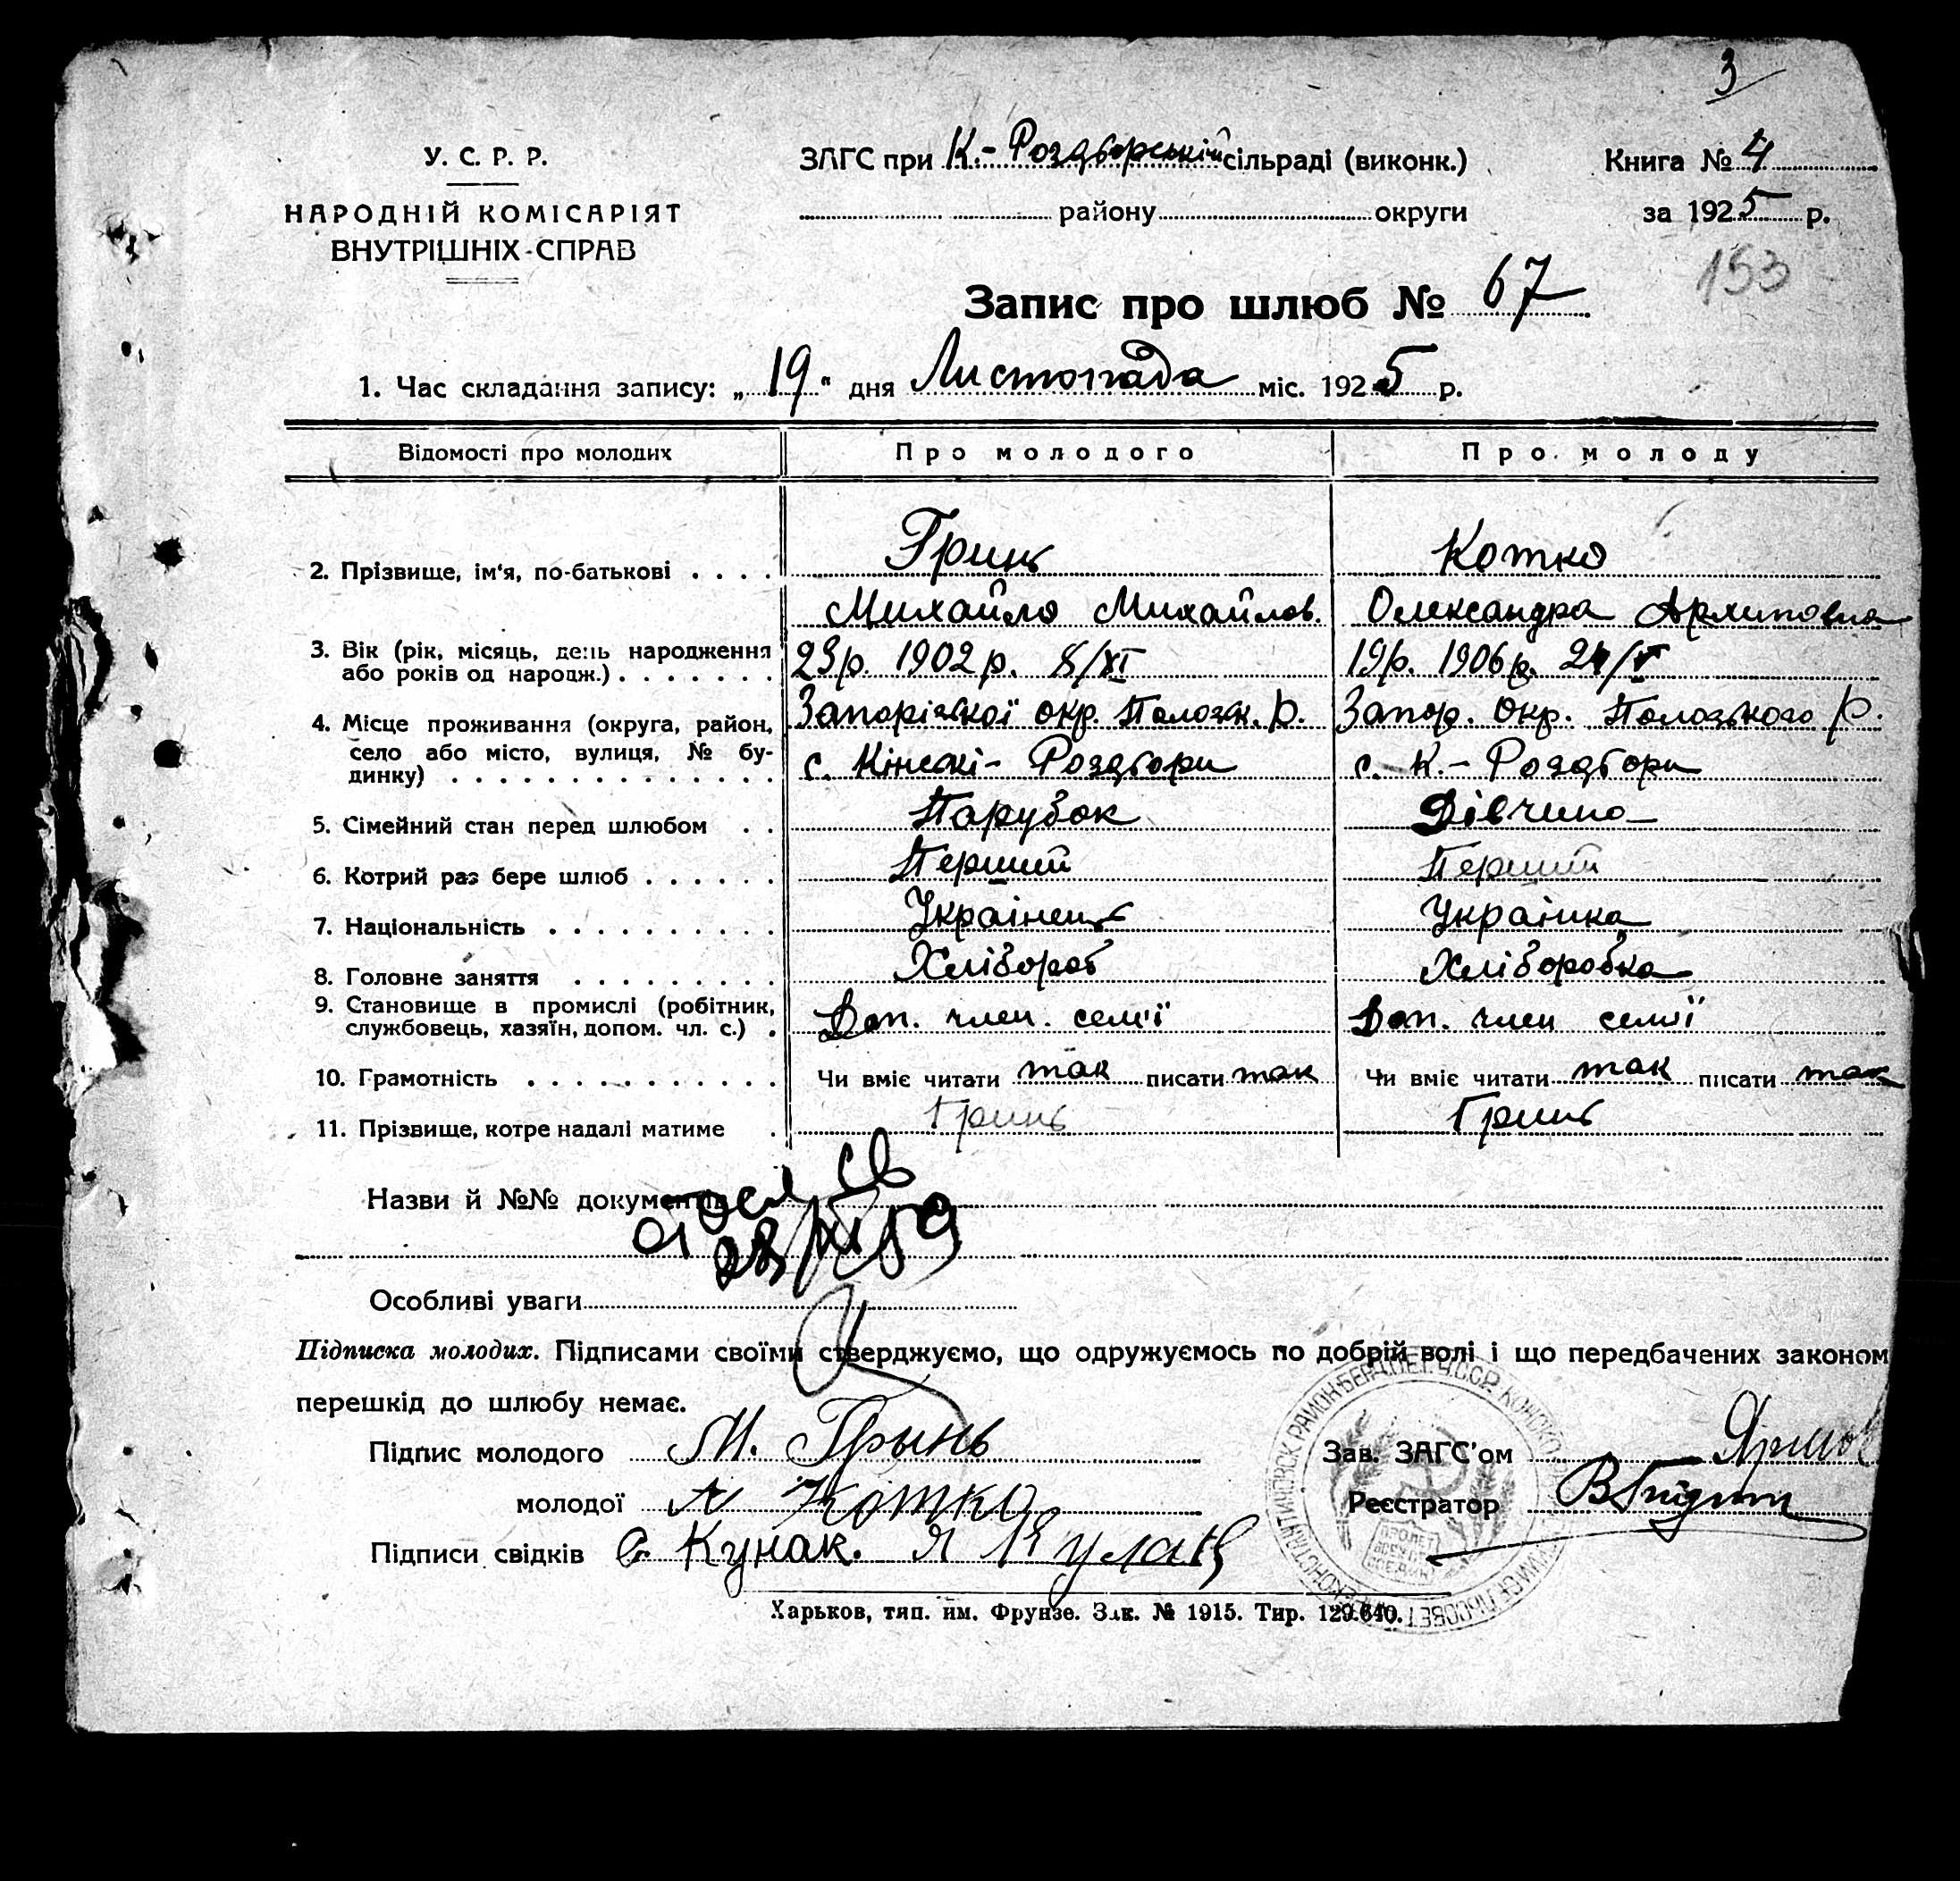 3
У. С. Р. Р.
НАРОДНІЙ КОМІСАРІЯТ
ВНУТРІШНІХ-СПРАВ
ЗАГС при К.-Роздворській сільраді (виконк.)
району округи
Книга № 4
за 1925 р.
153
Запис про шлюб № 67
1. Час складання запису: „19" дня Листопада міс. 1925 р.
Відомості про молодих Про молодого Про молоду
2. Прізвище, ім'я, по-батькові . . . . Гринь Котко
Михайло Михайлов. Олександра Архиповна
3. Вік (рік, місяць, день народження або років од народж.) . . . . . . . 23 р. 1902 р. 8/XI 19 р. 1906 р. 24/V
4. Місце проживання (округа, район, Запорізької окр. Полозьк. р. Запор. окр. Полозького р.
село або місто, вулиця, № будинку) . . . . . . . . . . . . . . с. Кінські-Роздори с. К.-Роздори
5. Сімейний стан перед шлюбом . . Парубок Дівчина
6. Котрий раз бере шлюб . . . . . . Перший Перший
7. Національність . . . . . . . . . . Українець Українка
8. Головне заняття . . . . . . . . . Хлібороб Хліборобка
9. Становище в промислі (робітник, службовець, хазяїн, допом. чл. с.) . Доп. член. сем'ї Доп. член сем'ї
10. Грамотність . . . . . . . . . . . Чи вміє читати так писати так Чи вміє читати так писати так
11. Прізвище, котре надалі матиме . Гринь Гринь
Назви й №№ документів
28/XI 59
Особливі уваги
Підписка молодих. Підписами своїми стверджуємо, що одружуємось по добрій волі і що передбачених законом
перешкід до шлюбу немає.
Підпис молодого М. Грынь
Зав. ЗАГС'ом
молодої А Котко
Реєстратор
Підписи свідків С. Кунак. Я Кулак
Харьков, тип. им. Фрунзе. Зак. № 1915. Тир. 129.640.